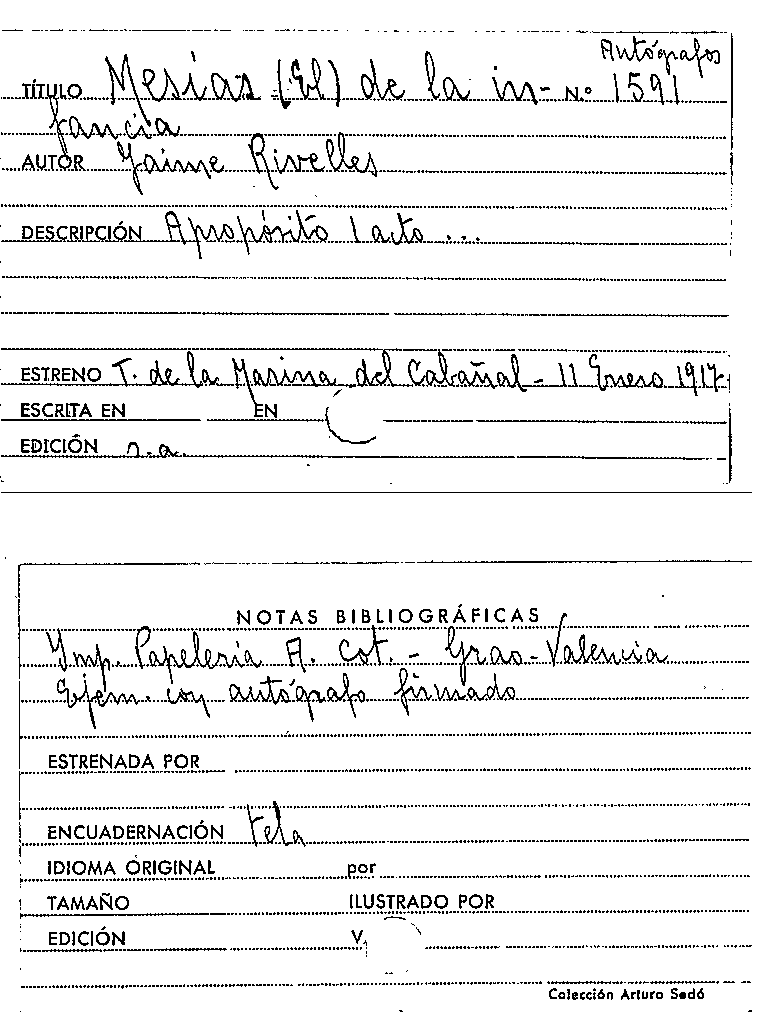 Autógrafos
TÍTULO Mesías (El) de la in- N.º 1591
fancia
AUTOR Jaime Rivelles
DESCRIPCIÓN Apropósito 1 acto ...
ESTRENO T. de la Marina del Cabañal - 11 Enero 1917-
ESCRITA EN EN
EDICIÓN s.a.
NOTAS BIBLIOGRÁFICAS
Imp. Papelería A. Cot. - Grao-Valencia
Ejem. con autógrafo firmado
ESTRENADA POR
ENCUADERNACIÓN tela
IDIOMA ORIGINAL por
TAMAÑO ILUSTRADO POR
EDICIÓN V,
Colección Arturo Sedó